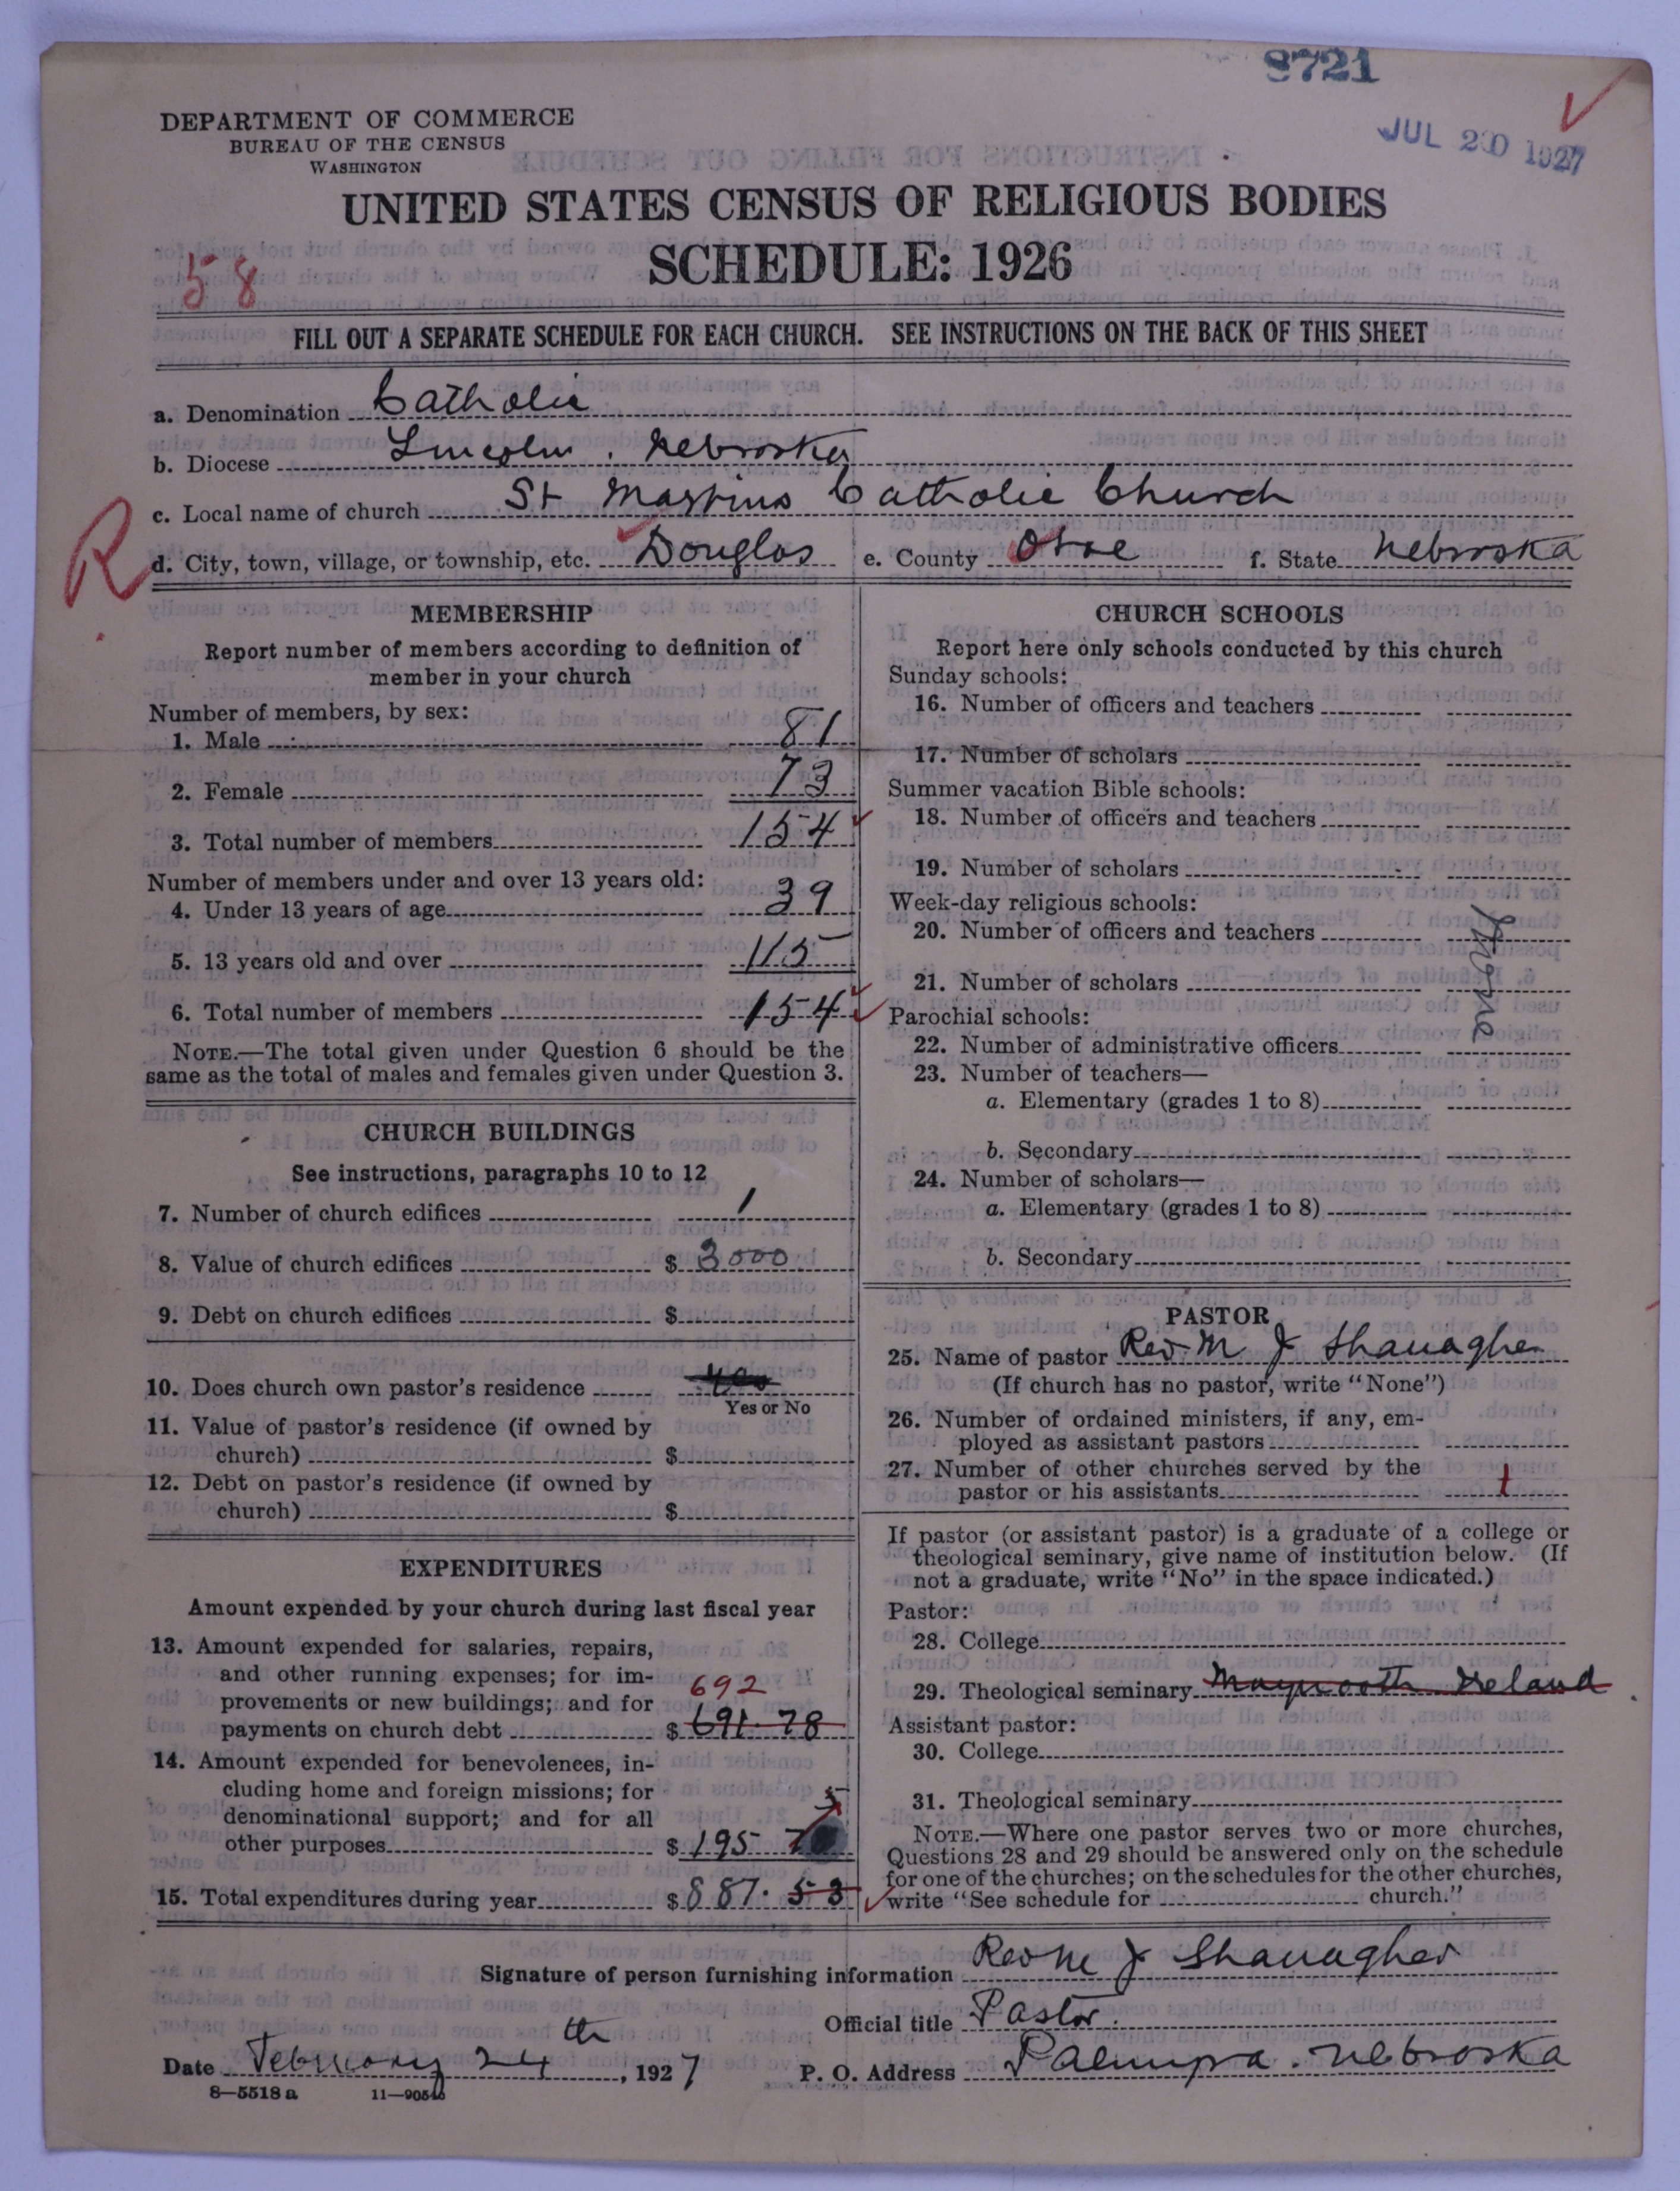 8721
JUL 20 1927
DEPARTMENT OF COMMERCE
BUREAU OF THE CENSUS
WASHINGTON
UNITED STATES CENSUS OF RELIGIOUS BODIES
SCHEDULE: 1926
58
FILL OUT A SEPARATE SCHEDULE FOR EACH CHURCH. SEE INSTRUCTIONS ON THE BACK OF THIS SHEET
a. Denomination Catholic
b. Diocese Lincoln, Nebraska
c. Local name of church St Martins Catholic Church
R
d. City, town, village, or township, etc. Douglas e. County Otoe f. State Nebraska
MEMBERSHIP
Report number of members according to definition of
member in your church
Number of members, by sex:
1. Male 81
2. Female 73
3. Total number of members 154
Number of members under and over 13 years old:
4. Under 13 years of age 39
5. 13 years old and over 115
6. Total number of members 154
NOTE.—The total given under Question 6 should be the
same as the total of males and females given under Question 3.
CHURCH BUILDINGS
See instructions, paragraphs 10 to 12
7. Number of church edifices 1
8. Value of church edifices $ 3000
9. Debt on church edifices $
10. Does church own pastor's residence yes
Yes or No
11. Value of pastor's residence (if owned by
church) $
12. Debt on pastor's residence (if owned by
church) $
EXPENDITURES
Amount expended by your church during last fiscal year
13. Amount expended for salaries, repairs,
and other running expenses; for im-
provements or new buildings; and for 692
payments on church debt $ 691.78
14. Amount expended for benevolences, in-
cluding home and foreign missions; for
denominational support; and for all 5
other purposes $ 195 7
15. Total expenditures during year $ 887.53
CHURCH SCHOOLS
Report here only schools conducted by this church
Sunday schools:
16. Number of officers and teachers
17. Number of scholars
Summer vacation Bible schools:
18. Number of officers and teachers
19. Number of scholars
Week-day religious schools:
20. Number of officers and teachers
None
21. Number of scholars
Parochial schools:
22. Number of administrative officers
23. Number of teachers—
a. Elementary (grades 1 to 8)
b. Secondary
24. Number of scholars—
a. Elementary (grades 1 to 8)
b. Secondary
PASTOR
25. Name of pastor Rev. M J Shanagher
(If church has no pastor, write "None")
26. Number of ordained ministers, if any, em-
ployed as assistant pastors
27. Number of other churches served by the
pastor or his assistants 1
If pastor (or assistant pastor) is a graduate of a college or
theological seminary, give name of institution below. (If
not a graduate, write "No" in the space indicated.)
Pastor:
28. College
29. Theological seminary Maynooth Ireland
Assistant pastor:
30. College
31. Theological seminary
NOTE.—Where one pastor serves two or more churches,
Questions 28 and 29 should be answered only on the schedule
for one of the churches; on the schedules for the other churches,
write "See schedule for church."
Signature of person furnishing information Rev M J Shanagher
Official title Pastor.
Date February 24th, 1927 P. O. Address Palmyra. Nebraska
8—5518 a 11—9054